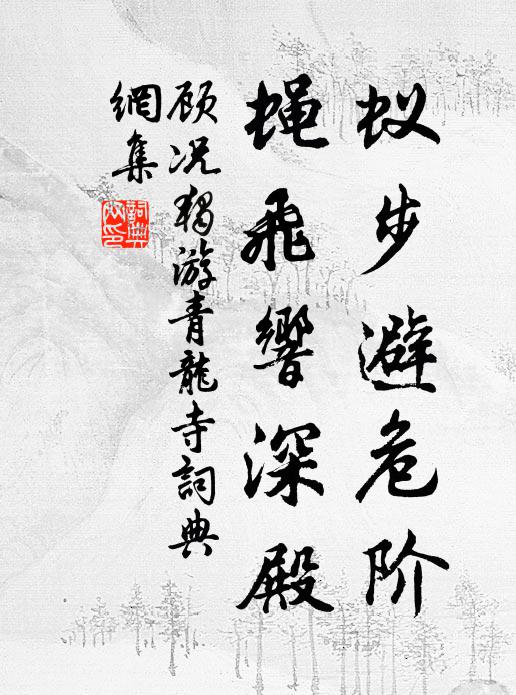 蚁步避危阶
蝇飞响深殿
顾况独游青龙寺詞典
網集
詞典網印